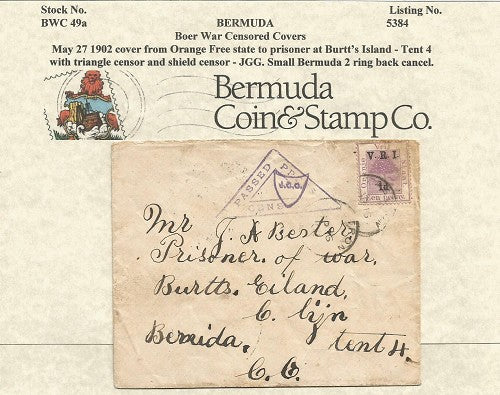 Stock No. BERMUDA Listing No.
BWC 49a Boer War Censored Covers 5384
May 27 1902 cover from Orange Free state to prisoner at Burtt's Island - Tent 4
with triangle censor and shield censor - JGG. Small Bermuda 2 ring back cancel.
Bermuda
Coin&Stamp Co.
PASSED PRESS
CENSOR
J.G.G.
V.R.I.
1d
Mr J. A Bester
Prisoner. of war.
Burtts. Eiland.
C. lijn
Bermuda, tent 4.